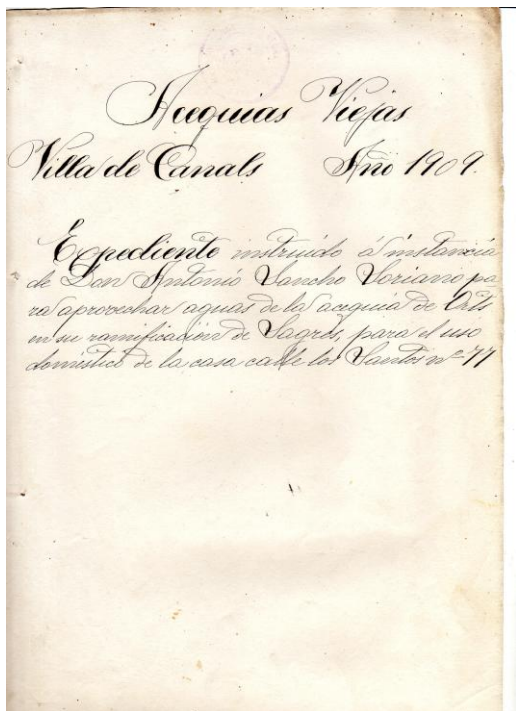 Acequias Viejas
Villa de Canals Año 1909.
Expediente instruido á instancia
de Don Antonio Sancho Soriano pa
ra aprovechar aguas de la acequia de Ails
en su ramificación de Sagrés, para el uso
doméstico de la casa calle los Santos nº 77